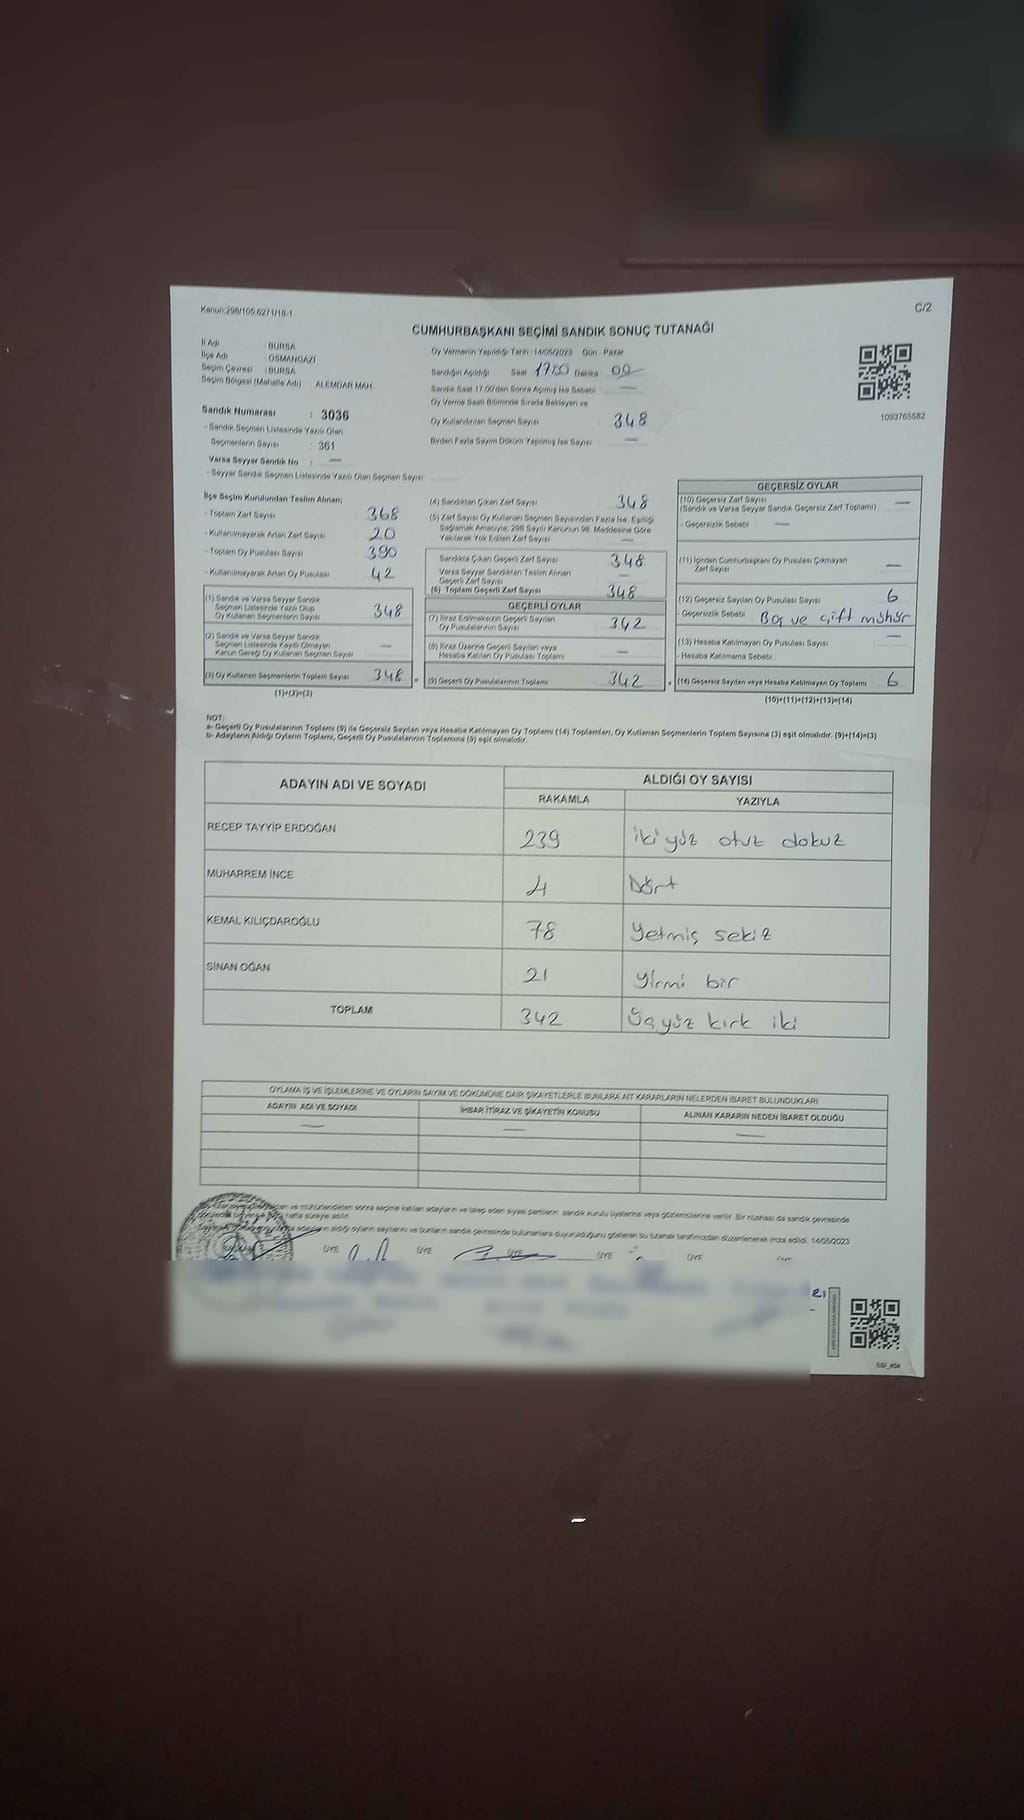 Kanun:298/105,6271/18-1
C/2
CUMHURBAŞKANI SEÇİMİ SANDIK SONUÇ TUTANAĞI
İl Adı : BURSA
İlçe Adı : OSMANGAZİ
Seçim Çevresi : BURSA
Seçim Bölgesi (Mahalle Adı) : ALEMDAR MAH.
Sandık Numarası : 3036
- Sandık Seçmen Listesinde Yazılı Olan
Seçmenlerin Sayısı : 361
Varsa Seyyar Sandık No : —
- Seyyar Sandık Seçmen Listesinde Yazılı Olan Seçmen Sayısı
Oy Vermenin Yapıldığı Tarih : 14/05/2023 Gün : Pazar
Sandığın Açıldığı Saat 1700 Dakika 00
Sandık Saat 17:00'den Sonra Açılmış İse Sebebi : —
Oy Verme Saati Bitiminde Sırada Bekleyen ve
Oy Kullandırılan Seçmen Sayısı 348
Birden Fazla Sayım Döküm Yapılmış İse Sayısı —
1093765582
İlçe Seçim Kurulundan Teslim Alınan;
- Toplam Zarf Sayısı 368
- Kullanılmayarak Artan Zarf Sayısı 20
- Toplam Oy Pusulası Sayısı 390
- Kullanılmayarak Artan Oy Pusulası 42
(1) Sandık ve Varsa Seyyar Sandık
Seçmen Listesinde Yazılı Olup
Oy Kullanan Seçmenlerin Sayısı 348
(2) Sandık ve Varsa Seyyar Sandık
Seçmen Listesinde Kayıtlı Olmayan
Kanun Gereği Oy Kullanan Seçmen Sayısı —
(3) Oy Kullanan Seçmenlerin Toplam Sayısı 348
(1)+(2)=(3)
(4) Sandıktan Çıkan Zarf Sayısı 348
(5) Zarf Sayısı Oy Kullanan Seçmen Sayısından Fazla İse, Eşitliği
Sağlamak Amacıyla, 298 Sayılı Kanunun 98. Maddesine Göre
Yakılarak Yok Edilen Zarf Sayısı —
Sandıkta Çıkan Geçerli Zarf Sayısı 348
Varsa Seyyar Sandıktan Teslim Alınan
Geçerli Zarf Sayısı —
(6) Toplam Geçerli Zarf Sayısı 348
GEÇERLİ OYLAR
(7) İtiraz Edilmeksizin Geçerli Sayılan
Oy Pusulalarının Sayısı 342
(8) İtiraz Üzerine Geçerli Sayılan veya
Hesaba Katılan Oy Pusulası Toplamı —
(9) Geçerli Oy Pusulalarının Toplamı 342
GEÇERSİZ OYLAR
(10) Geçersiz Zarf Sayısı —
(Sandık ve Varsa Seyyar Sandık Geçersiz Zarf Toplamı)
- Geçersizlik Sebebi : —
(11) İçinden Cumhurbaşkanı Oy Pusulası Çıkmayan
Zarf Sayısı —
(12) Geçersiz Sayılan Oy Pusulası Sayısı 6
- Geçersizlik Sebebi : Boş ve çift mühür
(13) Hesaba Katılmayan Oy Pusulası Sayısı —
- Hesaba Katılmama Sebebi :
(14) Geçersiz Sayılan veya Hesaba Katılmayan Oy Toplamı 6
(10)+(11)+(12)+(13)=(14)
NOT:
a- Geçerli Oy Pusulalarının Toplamı (9) ile Geçersiz Sayılan veya Hesaba Katılmayan Oy Toplamı (14) Toplamları, Oy Kullanan Seçmenlerin Toplam Sayısına (3) eşit olmalıdır. (9)+(14)=(3)
b- Adayların Aldığı Oyların Toplamı, Geçerli Oy Pusulalarının Toplamına (9) eşit olmalıdır.
ADAYIN ADI VE SOYADI
ALDIĞI OY SAYISI
RAKAMLA YAZIYLA
RECEP TAYYİP ERDOĞAN 239 iki yüz otuz dokuz
MUHARREM İNCE 4 Dört
KEMAL KILIÇDAROĞLU 78 Yetmiş sekiz
SİNAN OĞAN 21 Yirmi bir
TOPLAM 342 Üçyüz kırk iki
OYLAMA İŞ VE İŞLEMLERİNE VE OYLARIN SAYIM VE DÖKÜMÜNE DAİR ŞİKAYETLERLE BUNLARA AİT KARARLARIN NELERDEN İBARET BULUNDUKLARI
ADAYIN ADI VE SOYADI İHBAR İTİRAZ VE ŞİKAYETİN KONUSU ALINAN KARARIN NEDEN İBARET OLDUĞU
— — —
ve mühürlendikten sonra seçime katılan adayların ve talep eden siyasi partilerin sandık kurulu üyelerine veya gözlemcilerine verilir. Bir nüshası da sandık çevresinde
hafta süreyle asılır.
adayların aldığı oyların sayılarını ve bunların sandık çevresinde bulunanlara duyurulduğunu gösteren bu tutanak tarafımızdan düzenlenerek imza edildi. 14/05/2023
ÜYE ÜYE ÜYE ÜYE ÜYE